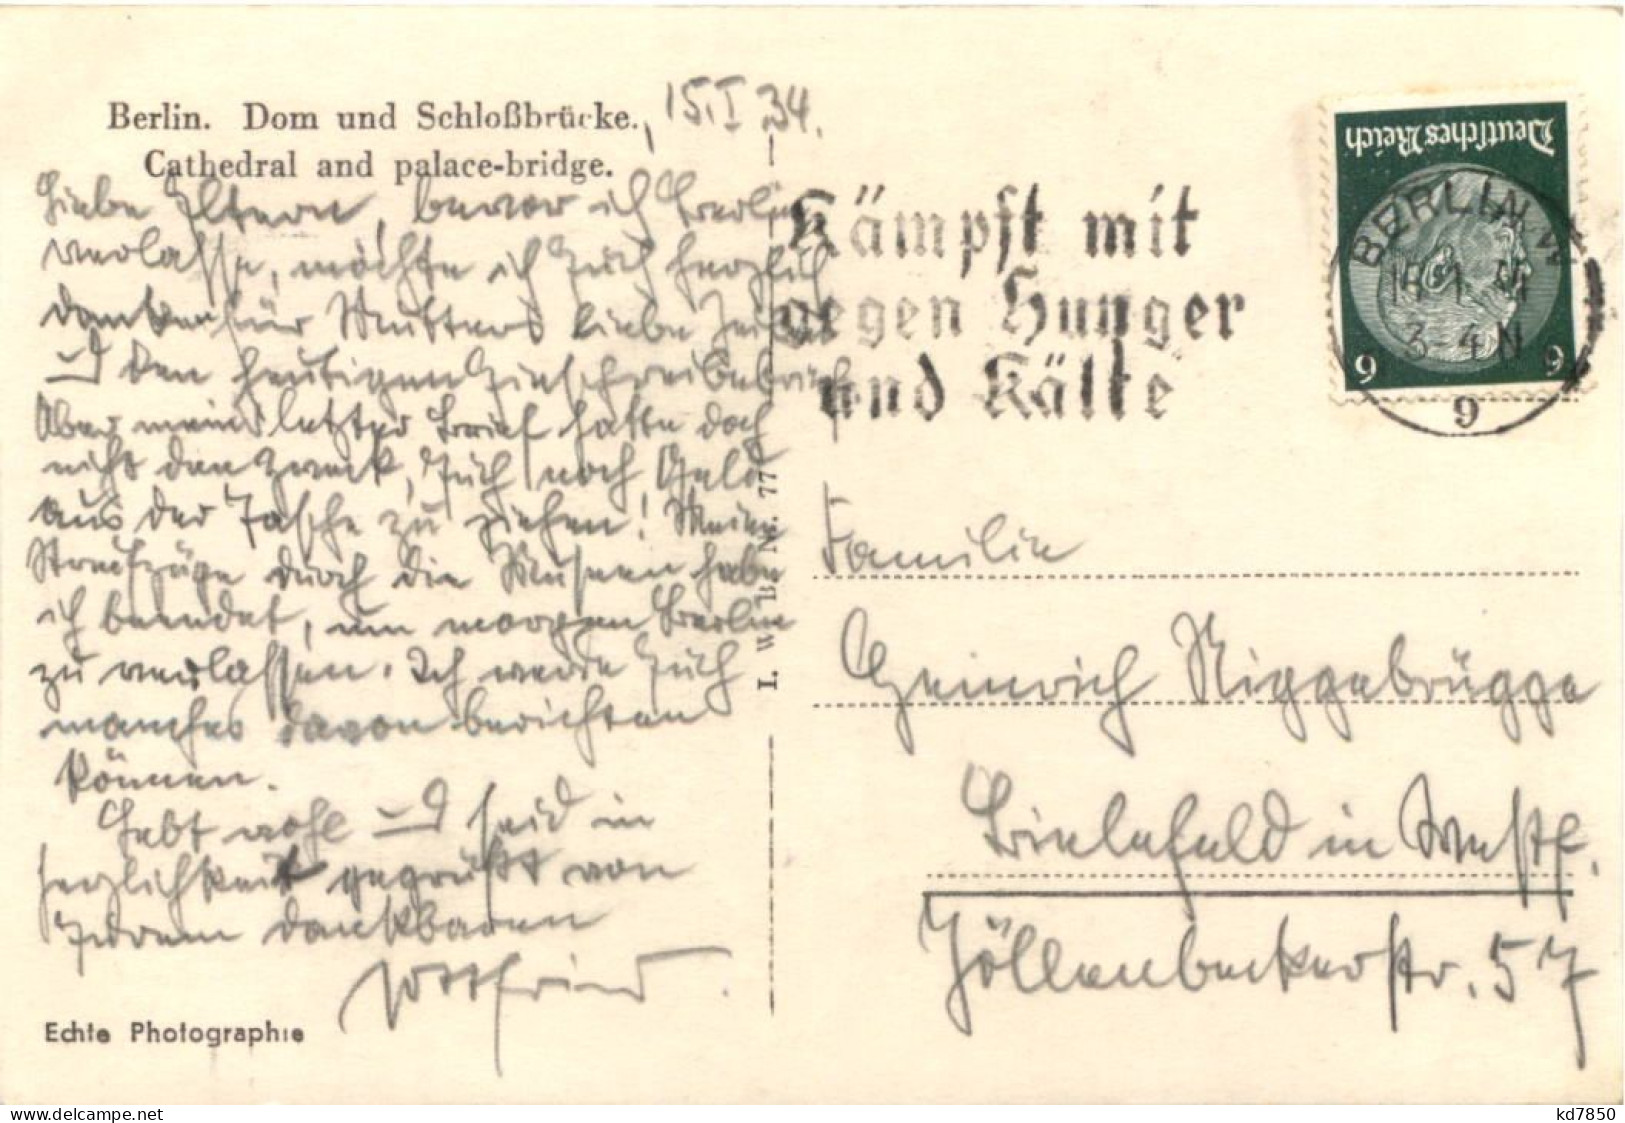 Berlin. Dom und Schloßbrücke.
Cathedral and palace-bridge.
15.I 34.
Liebe Eltern, bevor ich Berlin
verlasse, möchte ich Euch herzlich
danken für Mutters liebe Zeilen
und den heutigen Einschreibebrief
Aber mein letzter Brief hatte doch
nicht den Zweck, Euch noch Geld
aus der Tasche zu ziehen! Meine
Streifzüge durch die Museen habe
ich beendet, um morgen Berlin
zu verlassen. Ich werde Euch
manches davon berichten
können.
Lebt wohl und seid in
Herzlichkeit gegrüßt von
Eurem dankbaren
Gottfried.
Echte Photographie
I. W. B. N. 77
Kämpft mit
gegen Hunger
und Kälte
Deutsches Reich
9 9
BERLIN W
3-4 N
9
Familie
Heinrich Niggebrügge
Bielefeld in Westf.
Jöllenbeckerstr. 57
delcampe.net
kd7850